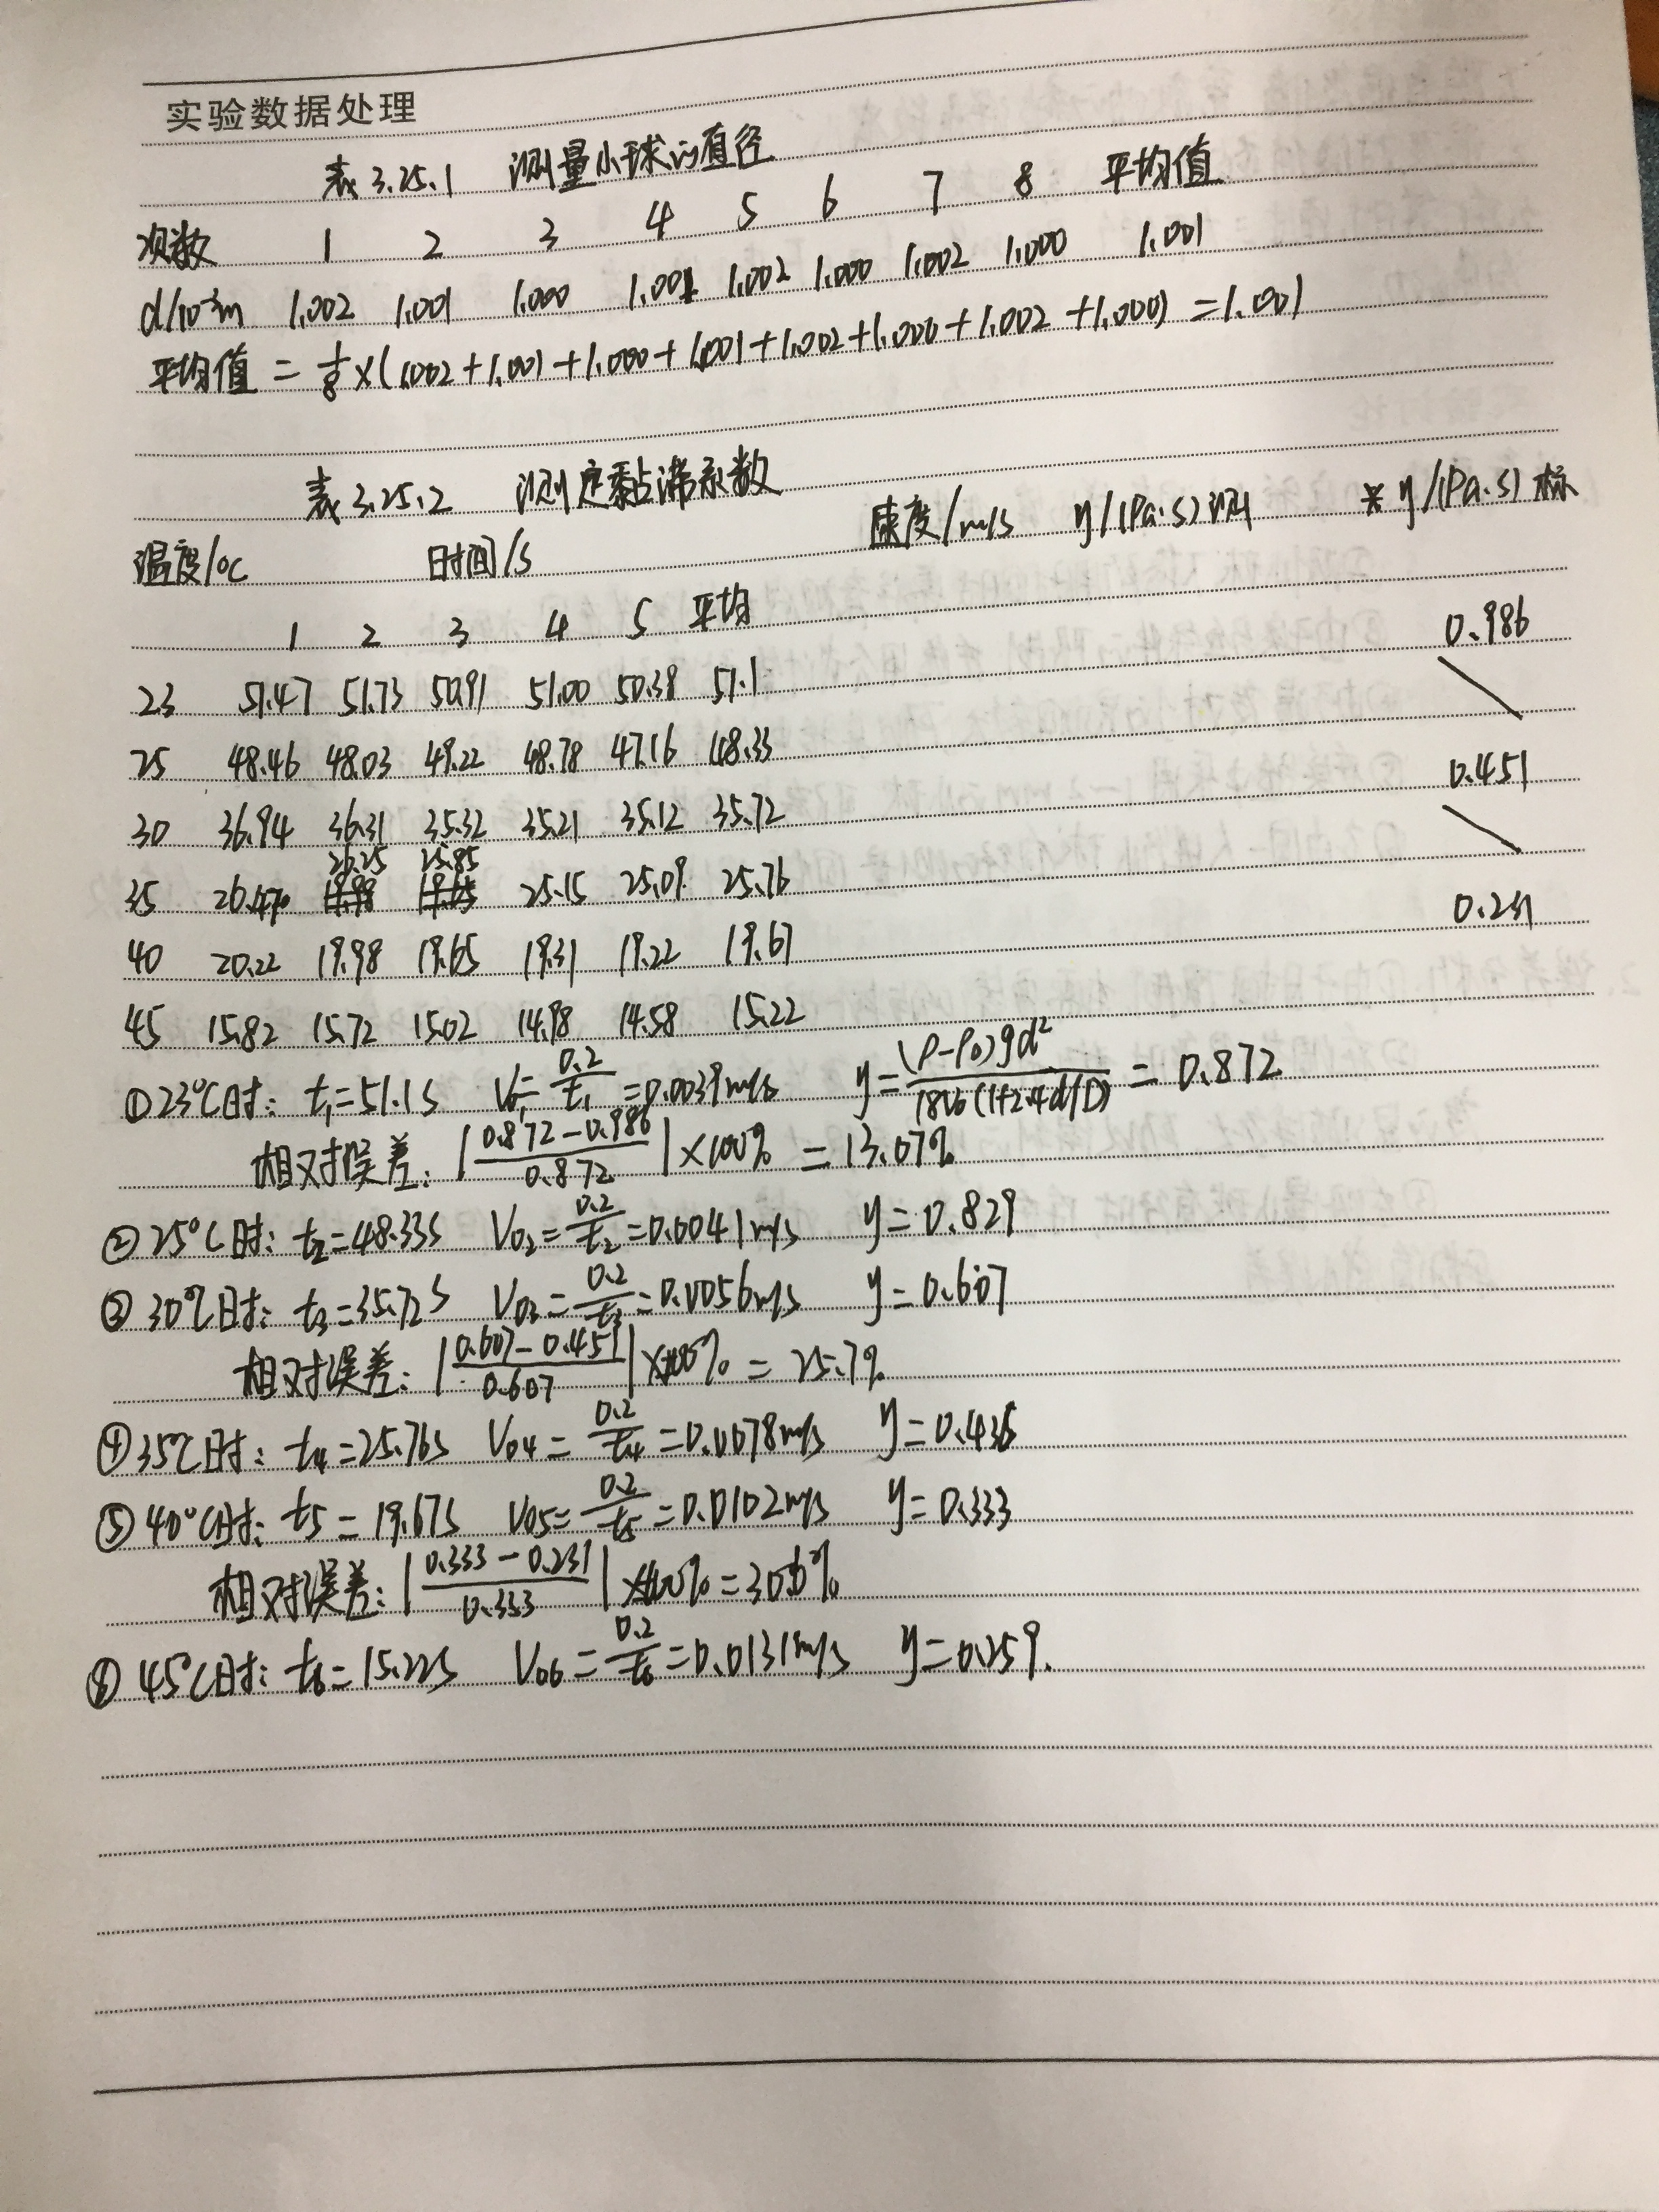 实验数据处理
表3.25.1 测量小球的直径
次数 1 2 3 4 5 6 7 8 平均值
d/10⁻³m 1.002 1.001 1.000 1.001 1.002 1.000 1.002 1.000 1.001
平均值 = 1/8 ×(1.002+1.001+1.000+1.001+1.002+1.000+1.002+1.000) = 1.001
表3.25.2 测定黏滞系数
温度/°C 时间/s 速度/m/s η/(Pa·s)测 * η/(Pa·s)标
1 2 3 4 5 平均
23 51.47 51.73 50.91 51.00 50.38 51.1 0.986
25 48.46 48.03 49.22 48.78 47.16 48.33 \
30 36.94 36.31 35.32 35.21 35.12 35.72 0.451
35 26.47 26.25 25.85 25.15 25.09 25.76 \
40 20.22 19.98 19.65 19.31 19.22 19.67 0.231
45 15.82 15.72 15.02 14.98 14.58 15.22
①23°C时: t₁=51.1s V₀₁=0.2/t₁=0.0039m/s η=(ρ-ρ₀)gd²/18V₀(1+2.4d/D) = 0.872
相对误差: |(0.872-0.986)/0.872|×100% = 13.07%
②25°C时: t₂=48.33s V₀₂=0.2/t₂=0.0041m/s η=0.829
③30°C时: t₃=35.72s V₀₃=0.2/t₃=0.0056m/s η=0.607
相对误差: |(0.607-0.451)/0.607|×100% = 25.7%
④35°C时: t₄=25.76s V₀₄=0.2/t₄=0.0078m/s η=0.436
⑤40°C时: t₅=19.67s V₀₅=0.2/t₅=0.0102m/s η=0.333
相对误差: |(0.333-0.231)/0.333|×100%=30.6%
⑥45°C时: t₆=15.22s V₀₆=0.2/t₆=0.0131m/s η=0.259.